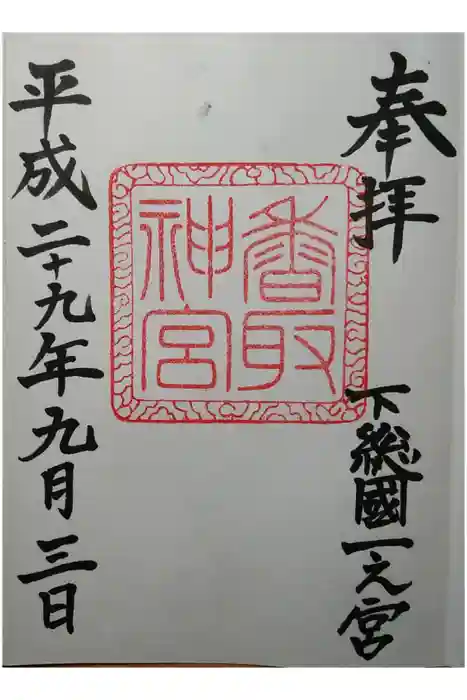 奉拝
下総國一之宮
香取
神宮
平成二十九年九月三日